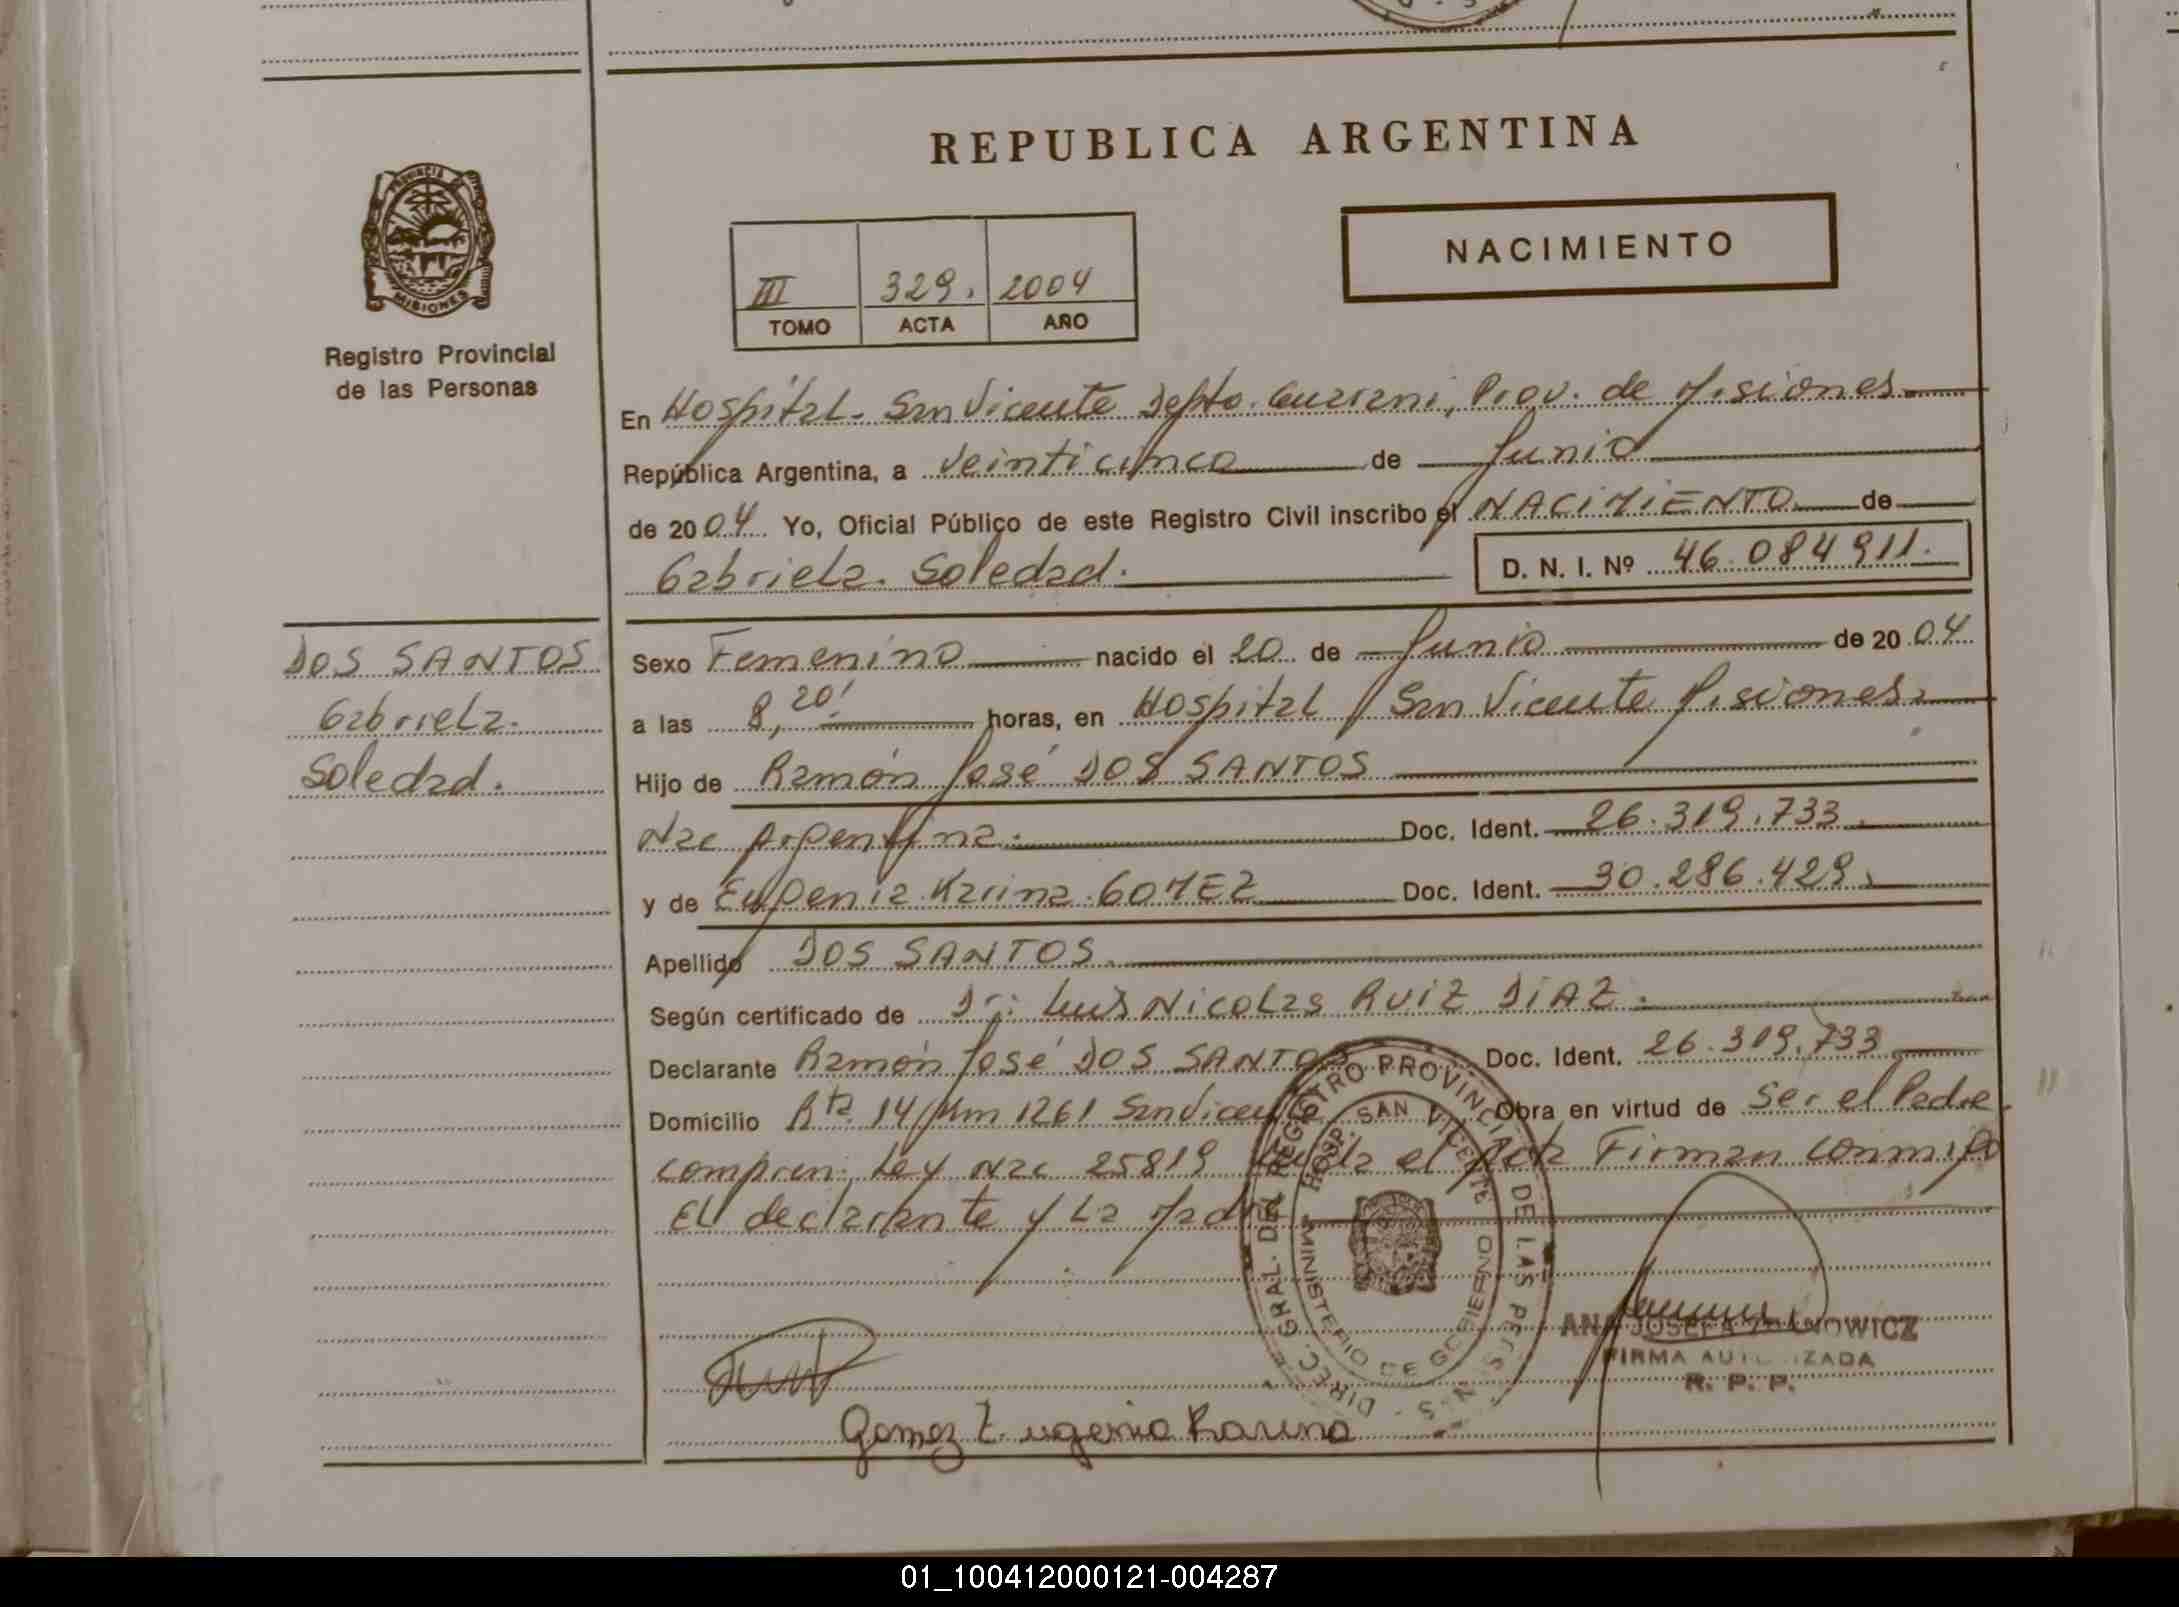 REPUBLICA ARGENTINA
PROVINCIA DE
MISIONES
Registro Provincial
de las Personas
NACIMIENTO
III 329. 2004
TOMO ACTA AÑO
En Hospital San Vicente Depto. Guarani, Prov. de Misiones
República Argentina, a Veinticinco de Junio
de 2004 Yo, Oficial Público de este Registro Civil inscribo el NACIMIENTO de
Gabriela Soledad. D. N. I. Nº 46.084911.
DOS SANTOS
Gabriela
Soledad.
Sexo Femenino nacido el 20 de Junio de 2004
a las 8,20' horas, en Hospital San Vicente Misiones
Hijo de Ramón José DOS SANTOS
Nac Argentina Doc. Ident. 26.319.733
y de Eugenia Karina GOMEZ Doc. Ident. 30.286.429
Apellido DOS SANTOS
Según certificado de Dr. Luis Nicolas RUIZ DIAZ
Declarante Ramón José DOS SANTOS Doc. Ident. 26.319.733
Domicilio Rta 14 Km 1261 San Vicente Obra en virtud de Ser el Padre
compren. Ley Nac 25819 el Acta Firman conmigo
El declarante y La Madre
DIREC. GRAL. DEL REGISTRO PROVINCIAL DE LAS PERSONAS
HOSP. SAN VICENTE
MINISTERIO DE GOBIERNO
ANA JOSEFA
FIRMA AUTORIZADA
R. P. P.
Gomez Eugenia Karina
01_100412000121-004287